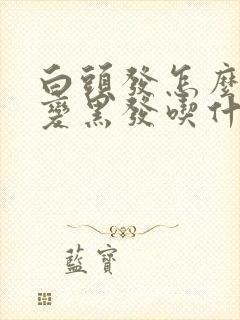 白頭發怎麼
變黑發喫什
藍寶